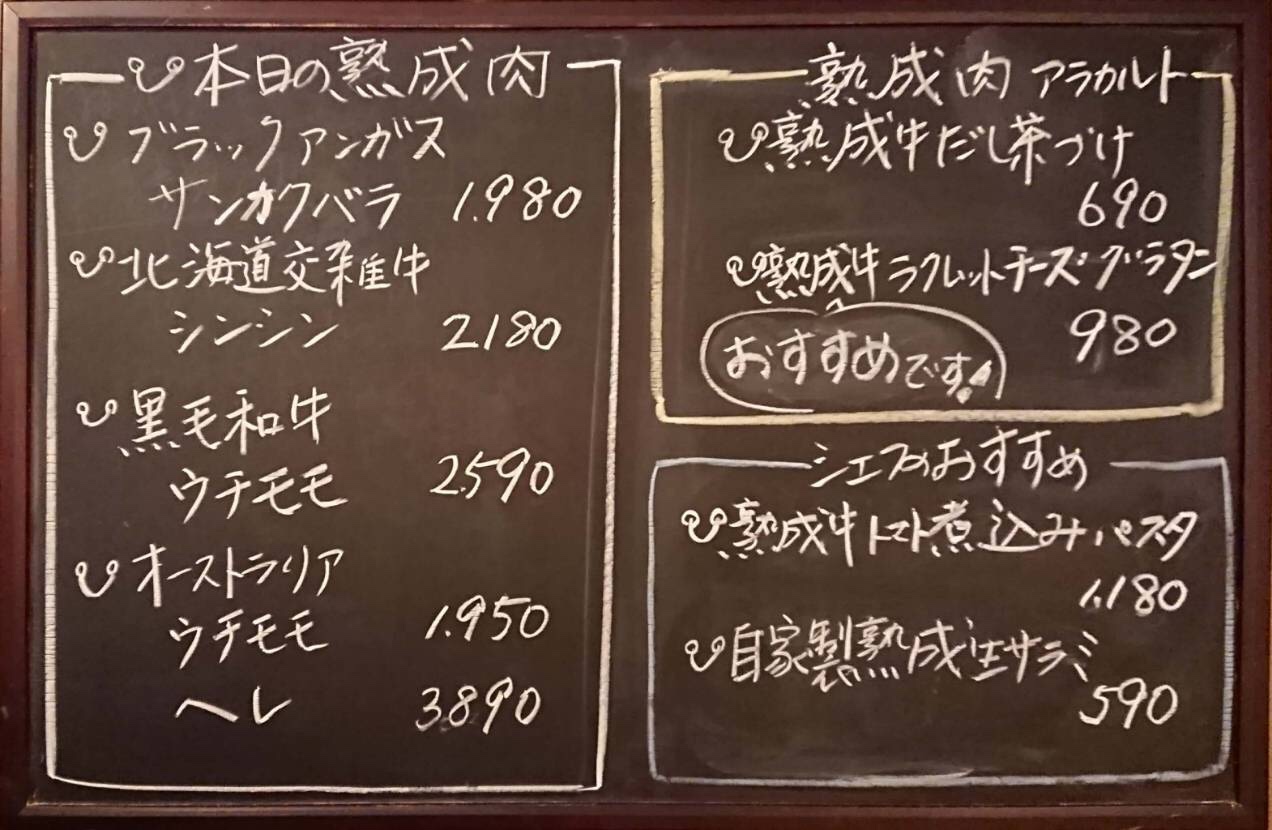 本日の熟成肉
ブラックアンガス
サンカクバラ 1.980
北海道交雑牛
シンシン 2180
黒毛和牛
ウチモモ 2.590
オーストラリア
ウチモモ 1.950
ヘレ 3.890
熟成肉 アラカルト
熟成牛だし茶づけ
690
熟成牛ラクレットチーズグラタン
980
おすすめです!
シェフのおすすめ
熟成牛トマト煮込みパスタ
1.180
自家製熟成生サラミ
590